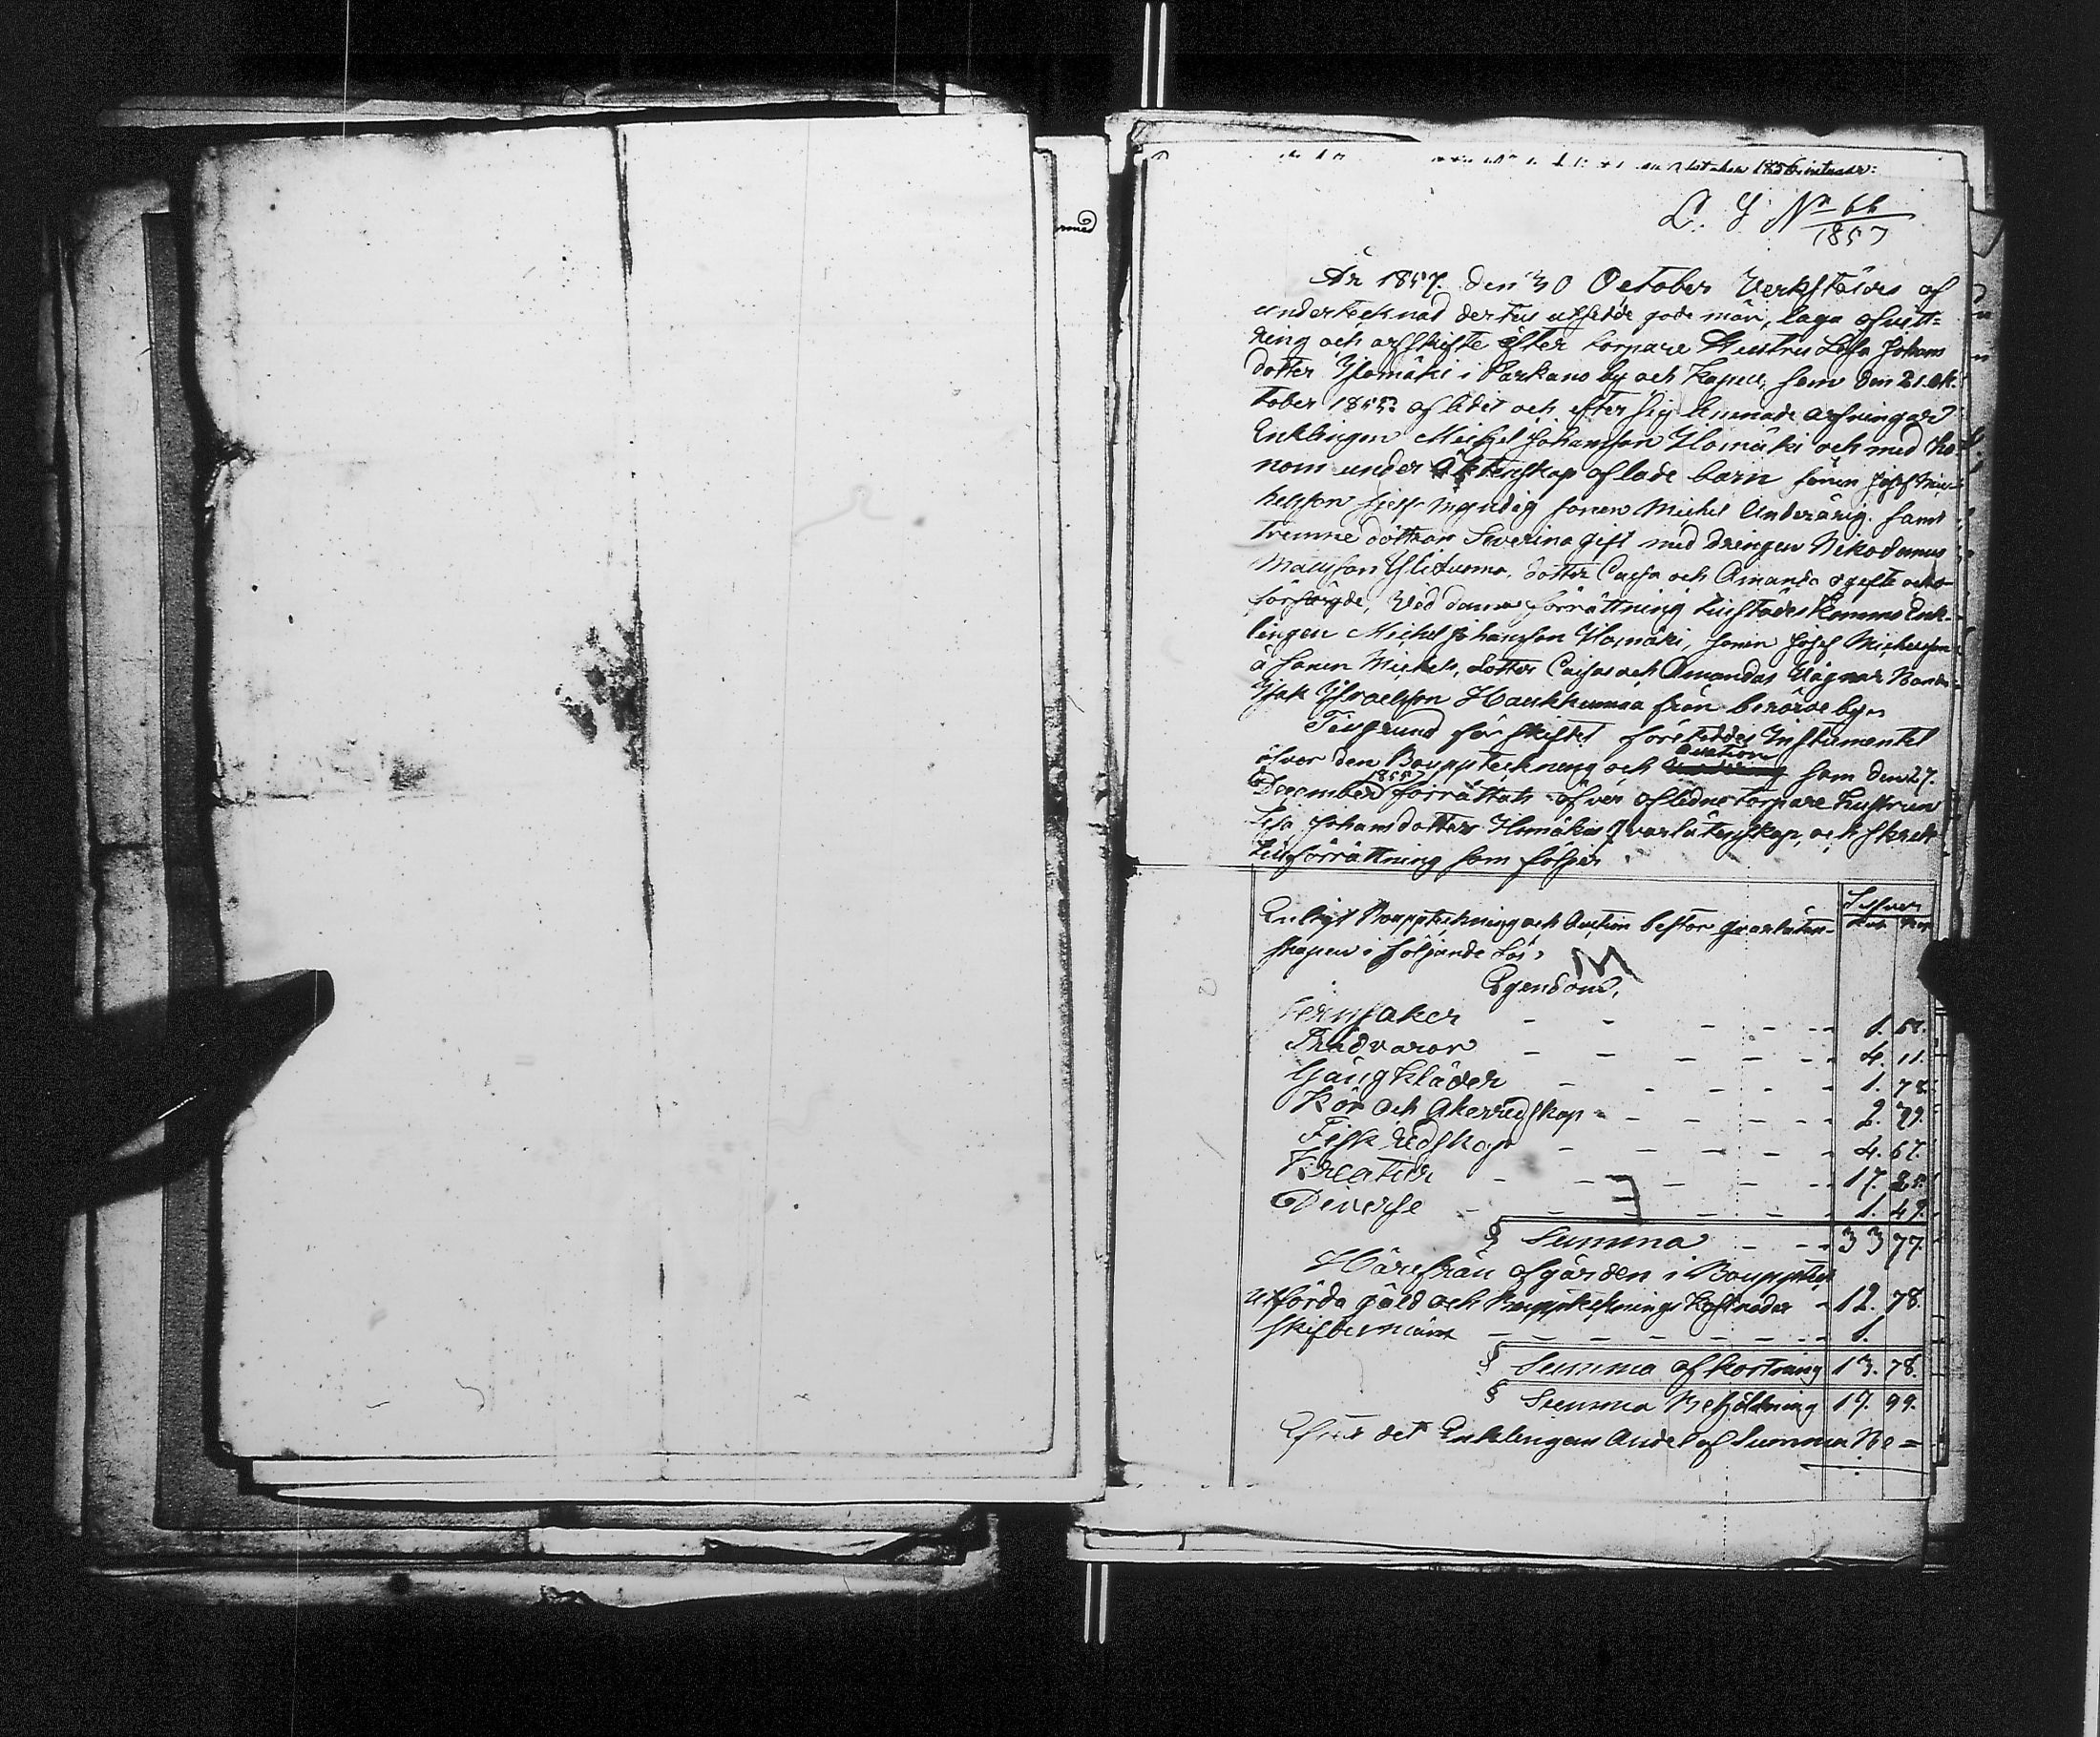 L. Y N° 66
1857
År 1857. den 30 October Verkstäldes af
undertecknad dertill utsedde gode män, laga afvitt=
ring och arfskifte efter torpare Hustru Lisa Johans
dotter Ylomäki i Parkano by och Kapell, som den 21. Ok-
tober 1855 aflidit och efter sig lemnade arfvingar
Enklingen Michel Johansson Ylomäki och med ho
nom under Äktenskap aflade barn sonen Josef Mic-
helsson sjelf Myndig sonen Michel Underårig. samt
trenne döttrar Severina gift med drengen Nikodemus
Mattsson Ylituomo, dotter Caisa och Amanda ogifte och o-
försörgde, Ved denna förrättning tillstädes Kommo Enk-
lingen Michel Johansson Ylomäki, sonen Josef Michelsson
å sonen Michels, dotter Caisas och Amandas Vägnar Bonden
Isak Ysraelsson Haukkumaa från berörde by.
Till grund för skiftet företeddes Instrumentet
auction
öfver den Bouppteckning och som den 27.
1855
December förrättats öfver aflidne torpare hustrun
Lisa Johansdotter Ylomäkis qvarlåtenskap, och skreds
till förrättning som följer
Enligt Bouppteckning och Auction består qvarlåten-
skapen i följande Lös
Silfver
Rub Kop
Egendom,
Jernsaker - - - - - 1. 57.
Trädvaror - - - - - 4. 11.
Gångkläder - - - - 1. 78.
Kör och Åkerredskap - - - - 2. 79.
Fisk redskap - - - - 4. 67.
Kreatur - - - - - 17. 25.
Diverse - - - - - 1. 49.
§ Summa - - - 33 77.
Härifrån afgården i Bouppteck
utförda gäld och Bouppteckningskostnader - 12. 78.
skiftesmän - - - - - 1.
§ Summa afkortning 13. 78.
§ Summa Behållning 19. 99.
det Enklingens Andel af Summa Be=